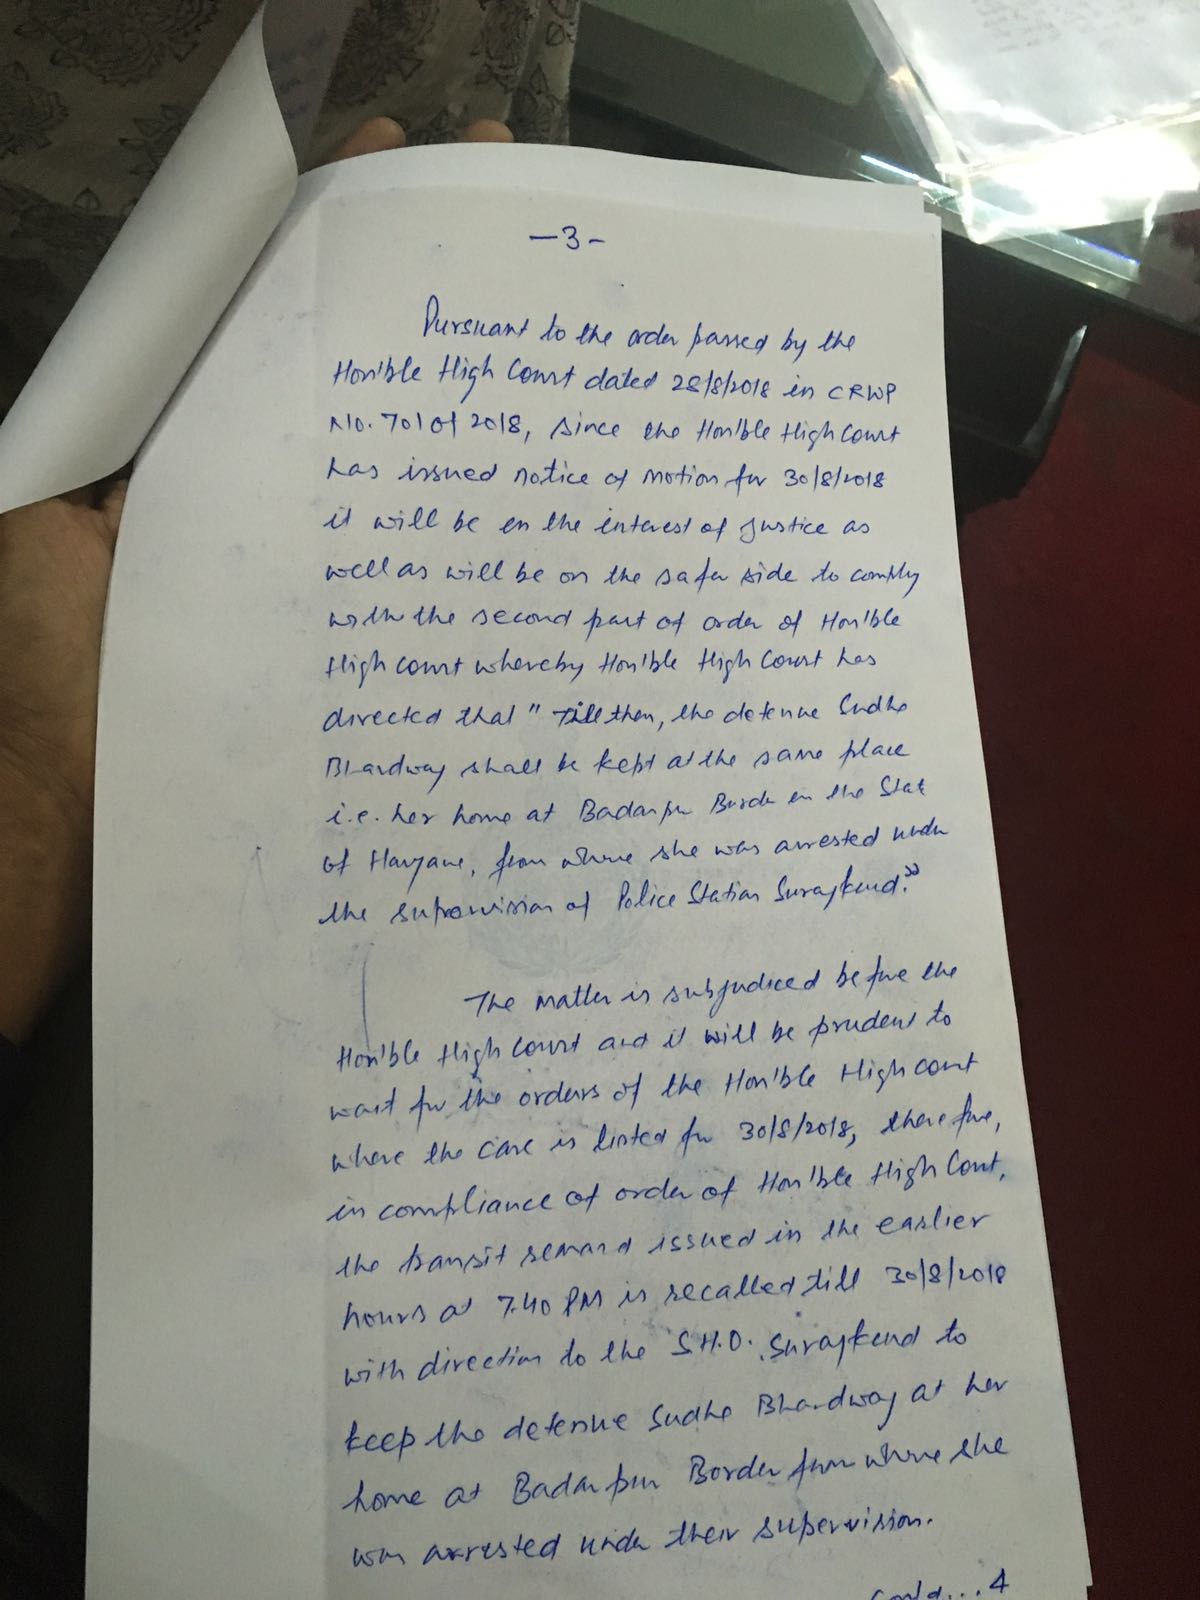 -3-
Pursuant to the order passed by the
Hon'ble High Court dated 28/8/2018 in CRWP
No. 701 of 2018, since the Hon'ble High Court
has issued notice of motion for 30/8/2018
it will be in the interest of justice as
well as will be on the safer side to comply
with the second part of order of Hon'ble
High Court whereby Hon'ble High Court has
directed that " Till then, the detenue Sudha
Bhardwaj shall be kept at the same place
i.e. her home at Badarpur Border in the State
of Haryana, from where she was arrested under
the supervision of Police Station Surajkund."
The matter is subjudiced before the
Hon'ble High Court and it will be prudent to
wait for the orders of the Hon'ble High Court
where the case is listed for 30/8/2018, therefore,
in compliance of order of Hon'ble High Court,
the transit remand issued in the earlier
hours at 7.40 PM is recalled till 30/8/2018
with direction to the S.H.O. Surajkund to
keep the detenue Sudha Bhardwaj at her
home at Badarpur Border from where she
was arrested under their supervision.
Contd....4